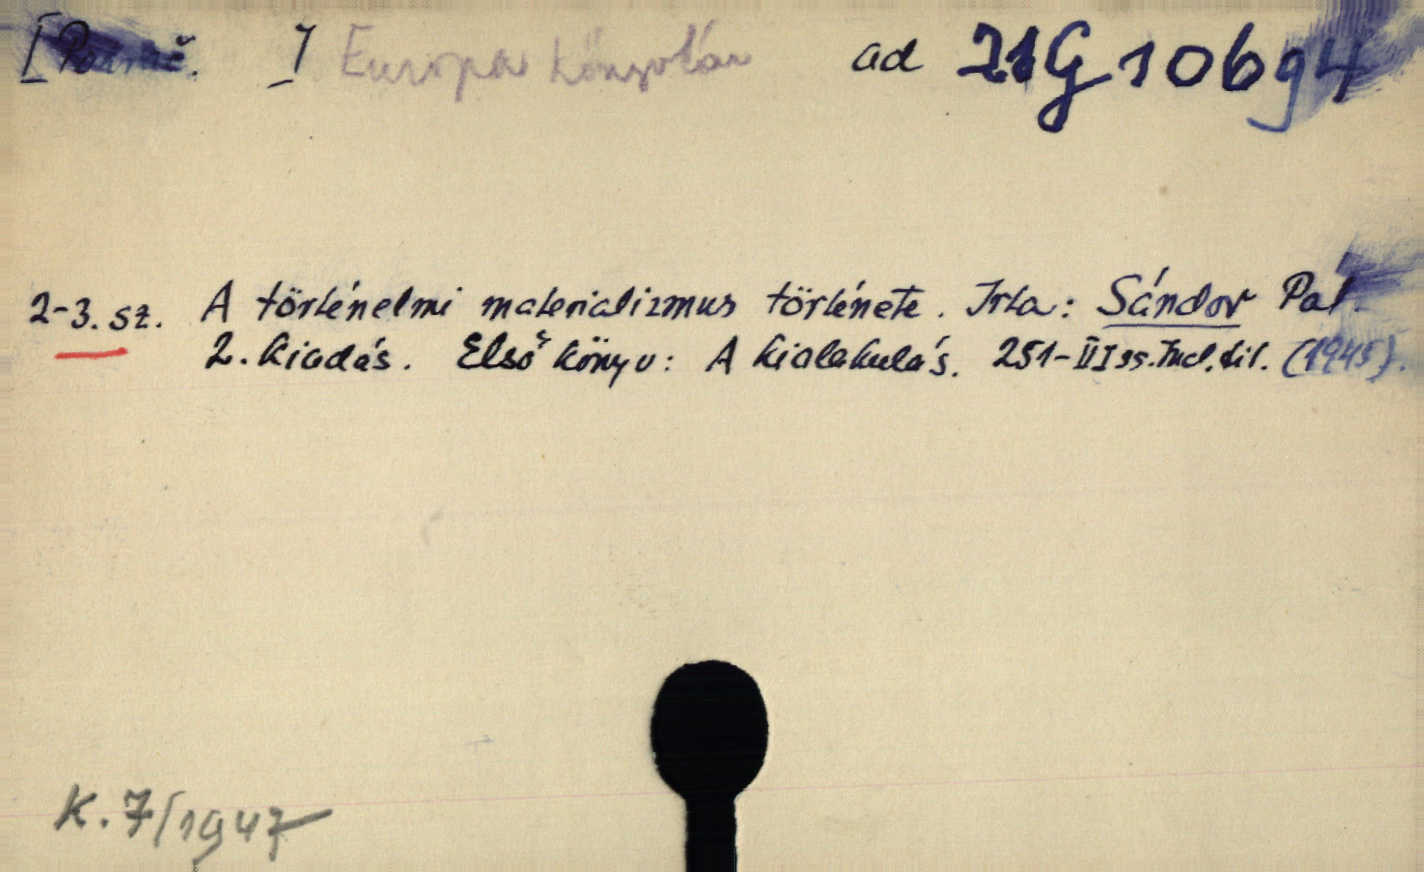 [ ] Europa könyvtár ad 21G10694
2-3. sz. A történelmi materializmus története. Irta: Sándor Pál.
2. kiadás. Első könyv: A kialakulás. 251-III ss. Incl. tit. (1945).
K. 7/1947